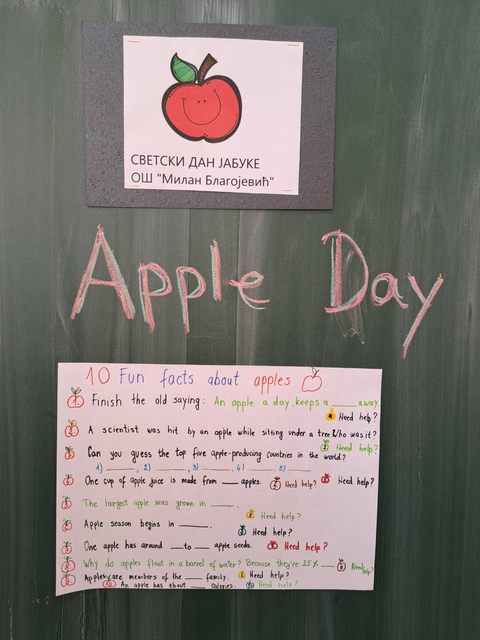 СВЕТСКИ ДАН ЈАБУКЕ
ОШ "Милан Благојевић"
Apple Day
10 Fun facts about apples
1 Finish the old saying: An apple a day, keeps a ____ away.
Need help?
2 A scientist was hit by an apple while sitting under a tree. Who was it?
Need help?
3 Can you guess the top five apple-producing countries in the world?
1) ____, 2) ____, 3) ____, 4) ____, 5) ____
Need help?
One cup of apple juice is made from ___ apples. Need help?
The largest apple was grown in ____.
Need help?
Apple season begins in ____.
Need help?
One apple has around ___ to ___ apple seeds. Need help?
Why do apples float in a barrel of water? Because they're 25% ___ Need help?
Apples are members of the ___ family. Need help?
An apple has about ___ calories. Need help?